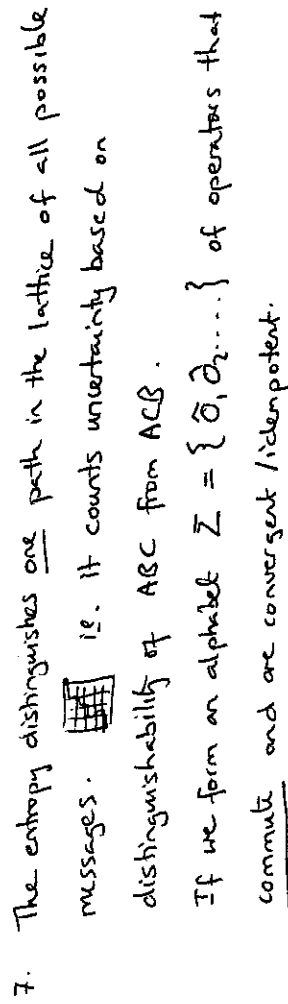 7. The entropy distinguishes one path in the lattice of all possible
messages. ie. It counts uncertainty based on
distinguishability of ABC from ACB.
If we form an alphabet Σ = { Ô₁ Ô₂ .... } of operators that
commute and are convergent / idempotent.